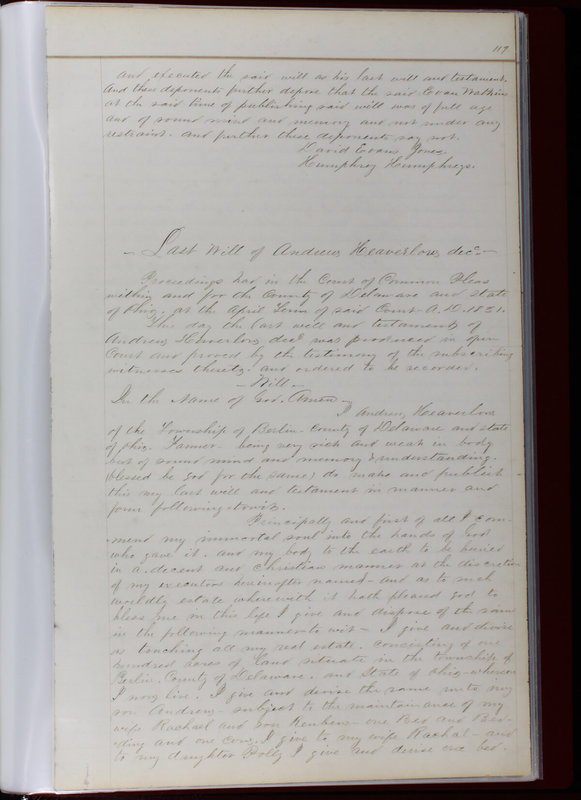 117
and executed the said will as his last will and testament.
And these deponents further depose that the said Evan Watkins
at the said time of publishing said will was of full age
and of sound mind and memory and not under any
restraint. and further these deponents say not.
David Evans Jones
Humphrey Humphreys.
- Last Will of Andrew Heaverlow, decd -
Proceedings had in the Court of Common Pleas
within and for the County of Delaware and state
of Ohio. at the April Term of said Court A.D. 1821.
This day the last will and testament of
Andrew Heaverlow decd was produced in open
Court and proved by the testimony of the subscribing
witnesses thereto. and ordered to be recorded.
- Will -
In the Name of God. Amen -
I Andrew Heaverlow
of the Township of Berlin County of Delaware and state
of Ohio. Farmer being very sick and weak in body
but of sound mind and memory & understanding.
blessed be God for the same, do make and publish
this my last will and testament in manner and
form following towit.
Principally and first of all I com-
-mend my immortal soul into the hands of God
who gave it. and my body to the earth to be buried
in a decent and Christian manner at the discretion
of my executors hereinafter named - and as to such
worldly estate wherewith it hath pleased God to
bless me in this life I give and dispose of the same
in the following manner to wit - I give and devise
as touching all my real estate. consisting of one
hundred acres of land situate in the township of
Berlin. County of Delaware. and State of Ohio - whereon
I now live. I give and devise the same unto my
son Andrew - subject to the maintainance of my
wife Rachael and son Reuben - one Bed and Bed-
-ding and one cow. I give to my wife Rachal - and
to my daughter Polly I give and devise one bed.